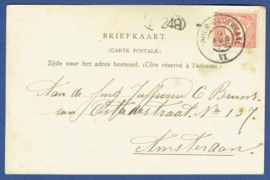 249
BRIEFKAART.
(CARTE POSTALE.)
Zijde voor het adres bestemd. (Côté réservé à l'adresse.)
Aan de Juffrouw C Bruns.
van Ostadestraat No 137.
Amsterdam
VI